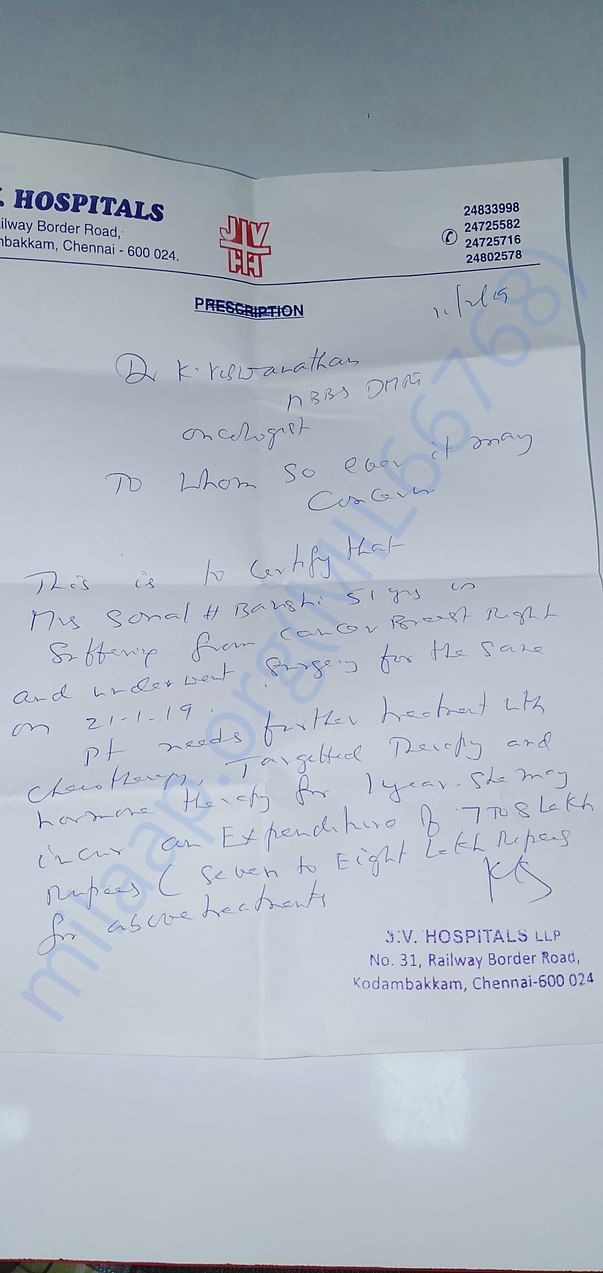 . HOSPITALS
ilway Border Road,
nbakkam, Chennai - 600 024.
JV
H
24833998
24725582
24725716
24802578
PRESCRIPTION
Dr K. Viswanathan
MBBS DMRT
oncologist
To whom so ever it may
Concern
This is to Certify that
Mrs Sonal H Banshi 51 yrs is
Suffering from Cancer Breast Right
and underwent Surgery for the same
on 21-1-19.
Pt needs further treatment with
Chemotherapy, Targetted Therapy and
hormone therapy for 1 year. She may
incur an Expenditure of 7 To 8 Lakh
Rupees (Seven to Eight Lakh Rupees
for above treatments
J.V. HOSPITALS LLP
No. 31, Railway Border Road,
Kodambakkam, Chennai-600 024
milaap.org(MIL66768)